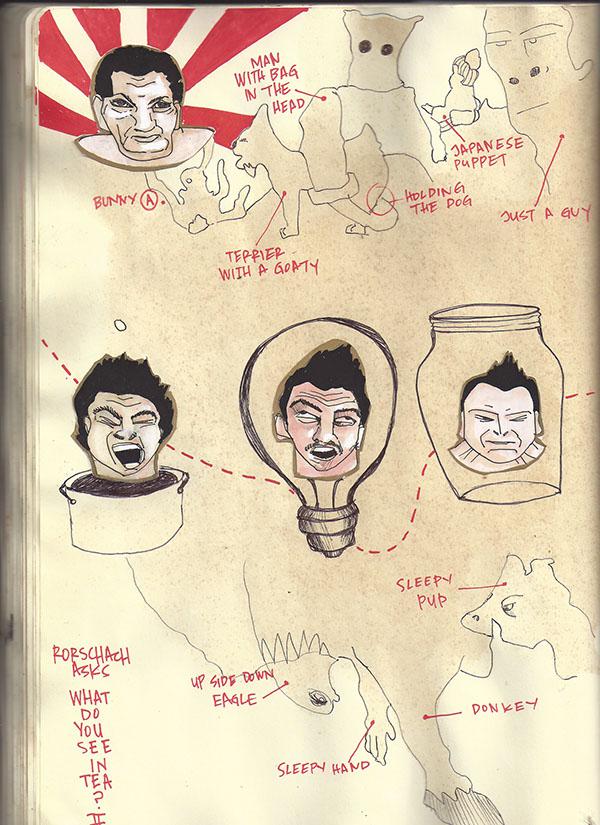 MAN
WITH BAG
IN THE
HEAD
JAPANESE
PUPPET
BUNNY A
HOLDING
THE DOG
JUST A GUY
TERRIER
WITH A GOATY
SLEEPY
PUP
RORSCHACH
ASKS
WHAT
DO
YOU
SEE
IN
TEA
?
II
UP SIDE DOWN
EAGLE
DONKEY
SLEEPY HAND